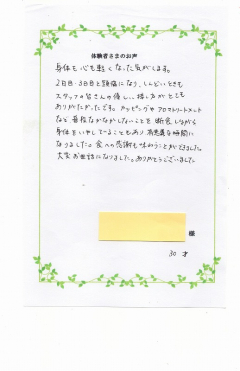 体験者さまのお声
身体も心も軽くなった気がします。
2日目・3日目と頭痛になり、しんどいときも
スタッフの皆さんの優しい接し方がとても
ありがたかったです。カッピングやアロマトリートメント
など普段なかなかしないことを断食しながら
身体をいやしてることもあり有意義な時間に
なりました。食への感謝も味わうことができました。
大変お世話になりました。ありがとうございました
様
30才